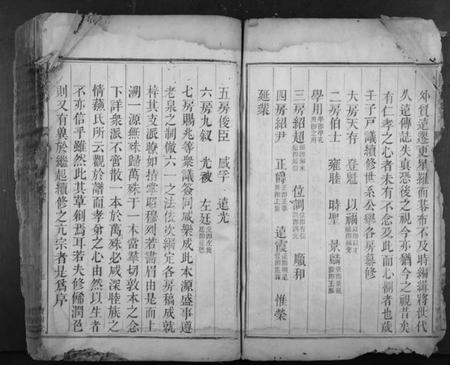 外貿遠遊更星羅而碁布不及時編緝將世代
久遠傳誌失真恐後之視今亦猶今之視昔矣
有仁孝之心者未有不念及此而心惻者也歲
壬子戶議續修世系公舉各房纂修
大房天有 登魁 以禍
二房伯士 雍睦 時聖 景
學用
三房紹超 位 順和
四房紹尹 正爵 遠霞 惟榮
延業
五房俊臣 咸孚 遠光
六房九叙 光被 左廷
七房賜兆等衆議僉同咸樂成此本源盛事遵
老泉之制倣六一之法依次編定各房稿成就
梓其支派瞭如指掌昭穆列若鬚眉由是而上
溯一源無殊歸萬殊于一本當羣切敦本之念
下詳衆派不啻散一本於萬殊必咸深睦族之
情蘇氏所云觀於譜而孝弟之心由然以生者
不亦信乎雖然此其草創焉耳若夫修飾潤色
則又有冀於繼起續修之亢宗者是爲序